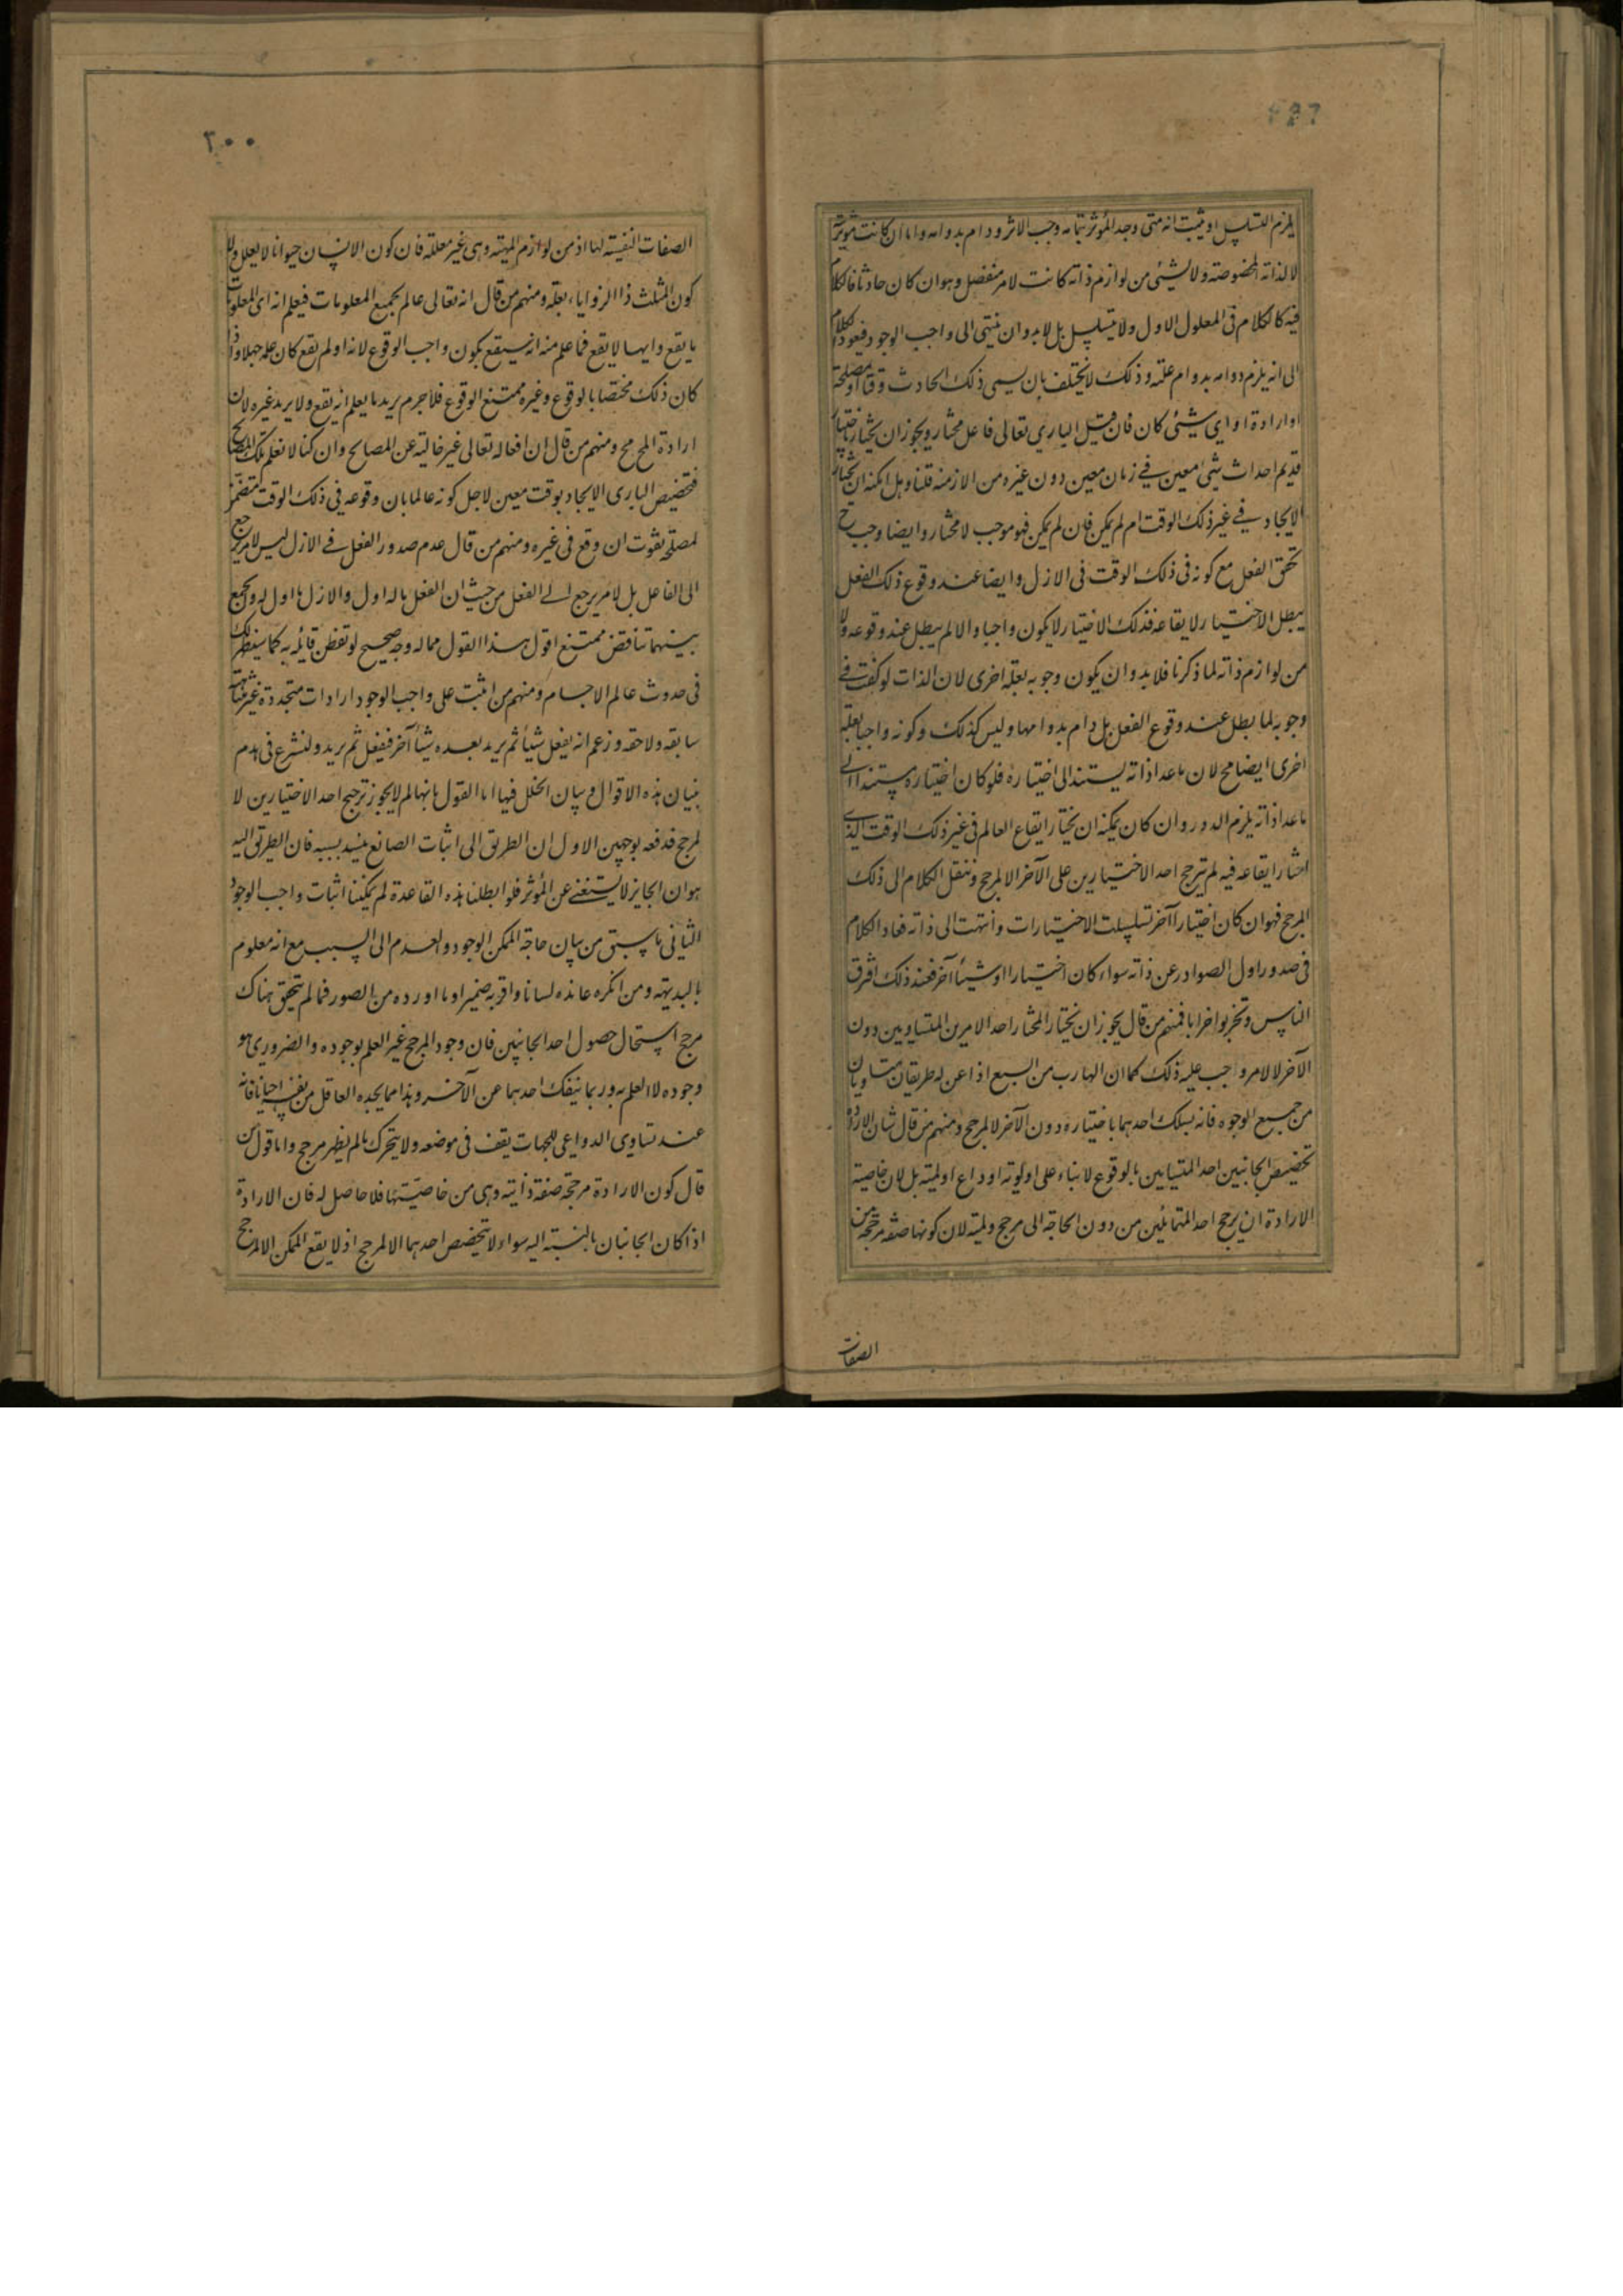 يلزم التسلسل او يثبت انه متى وجد المؤثر بتمامه وجب الاثر ودام بدوامه واما ان كانت مؤثريته
لا لذاته المخصوصة ولا لشيئ من لوازم ذاته كانت لامر منفصل وهو ان كان حادثا فالكلام
فيه كالكلام فى المعلول الاول ولا يتسلسل بل لا بد وان ينتهى الى واجب الوجود فيعود الكلام
الى انه يلزم دوامه بدوام علته وذلك لا يختلف بان يسمى ذلك الحادث وقتا او مصلحة
او ارادة او اي شيئ كان فان قيل الباري تعالى فاعل مختار ويجوز ان يختار باختيار
قديم احداث شيئ معين في زمان معين دون غيره من الازمنة قلنا وهل امكنه ان يختار
الايجاد في غير ذلك الوقت ام لم يمكن فان لم يمكن فهو موجب لا مختار وايضا وجب ح
تحقق الفعل مع كونه فى ذلك الوقت فى الازل وايضا عند وقوع ذلك الفعل
يبطل الاختيار لايقاعه فذلك الاختيار لا يكون واجبا والا لم يبطل عند وقوعه ولا
من لوازم ذاته لما ذكرنا فلا بد وان يكون وجوبه بعلة اخرى لان الذات لو كفت في
وجوبه لما بطل عند وقوع الفعل بل دام بدوامها وليس كذلك وكونه واجبا بعلة
اخرى ايضا مح لان ما عدا ذاته يستند الى اختياره فلو كان اختياره مستندا الى
ما عدا ذاته يلزم الدور وان كان يمكنه ان يختار ايقاع العالم فى غير ذلك الوقت الذي
اختار ايقاعه فيه لم يترجح احد الاختيارين على الآخر الا لمرجح وننقل الكلام الى ذلك
المرجح فهو ان كان اختيارا آخر تسلسلت الاختيارات وانتهت الى ذاته فعاد الكلام
فى صدور اول الصوادر عن ذاته سواء كان اختيارا او شيئا آخر فعند ذلك افترق
الناس وتحزبوا احزابا فمنهم من قال يجوز ان يختار المختار احد الامرين المتساويين دون
الآخر لا لامر واجب عليه ذلك كما ان الهارب من السبع اذا عن له طريقان متساويان
من جميع الوجوه فانه يسلك احدهما باختياره دون الآخر لا لمرجح ومنهم من قال شان الارادة
تخصيص الجانبين احد المتساويين بالوقوع لا بناء على اولوية او داع او لمية بل لان خاصية
الارادة ان يرجح احد المتماثلين من دون الحاجة الى مرجح ولمية لان كونها صفة مرجحة من
الصفات
٢٠٠
الصفات النفيسة لها اذ من لوازم المهية وهى غير معللة فان كون الانسان حيوانا لا يعلل ولا
كون المثلث ذا الزوايا بعلة ومنهم من قال انه تعالى عالم بجميع المعلومات فيعلم انه اى المعلومات
يقع وايها لا يقع فما علم منه انه سيقع يكون واجب الوقوع لانه لو لم يقع كان علمه جهلا واذا
كان ذلك مختصا بالوقوع وغيره ممتنع الوقوع فلا جرم يريد ما يعلم انه يقع ولا يريد غيره لان
ارادة المح مح ومنهم من قال ان افعاله تعالى غير خالية عن المصالح وان كنا لا نعلم تلك المصالح
فتخصيص البارى الايجاد بوقت معين لاجل كونه عالما بان وقوعه فى ذلك الوقت متضمن
لمصلحة تفوت ان وقع فى غيره ومنهم من قال عدم صدور الفعل في الازل ليس لامر يرجع
الى الفاعل بل لامر يرجع الى الفعل من حيث ان الفعل ما له اول والازل ما لا اول له والجمع
بينهما تناقض ممتنع اقول هذا القول مما له وجه صحيح لو تفطن قائله به كما سيظهر لك
فى حدوث عالم الاجسام ومنهم من اثبت على واجب الوجود ارادات متجددة غير متناهية
سابقة ولاحقة وزعم انه يفعل شيأ ثم يريد بعده شيأ آخر فيفعل ثم يريد ولنشرع فى هدم
بنيان هذه الاقوال وبيان الخلل فيها اما القول بانها لم لا يجوز ترجيح احد الاختيارين لا
لمرجح فدفعه بوجهين الاول ان الطريق الى اثبات الصانع ينسد بسببه فان الطريق اليه
هو ان الجايز لا يستغنى عن المؤثر فلو ابطلنا هذه القاعدة لم يمكننا اثبات واجب الوجود
الثانى ما سبق من بيان حاجة الممكن الوجود والعدم الى السبب مع انه معلوم
بالبديهة ومن انكره عانده لسانا واقر به ضميرا وما اورده من الصور فما لم يتحقق هناك
مرجح استحال حصول احد الجانبين فان وجود المرجح غير العلم بوجوده والضرورى هو
وجوده لا العلم به وربما ينفك احدهما عن الآخر وهذا مما يجده العاقل من نفسه احيانا فانه
عند تساوى الدواعى للجهات يقف فى موضعه ولا يتحرك ما لم يظهر مرجح واما قول من
قال كون الارادة مرجحة صفة ذاتية وهى من خاصيتها فلا حاصل له فان الارادة
اذا كان الجانبان بالنسبة اليه سواء لا يتخصص احدهما الا لمرجح اذ لا يقع الممكن الا لمرجح